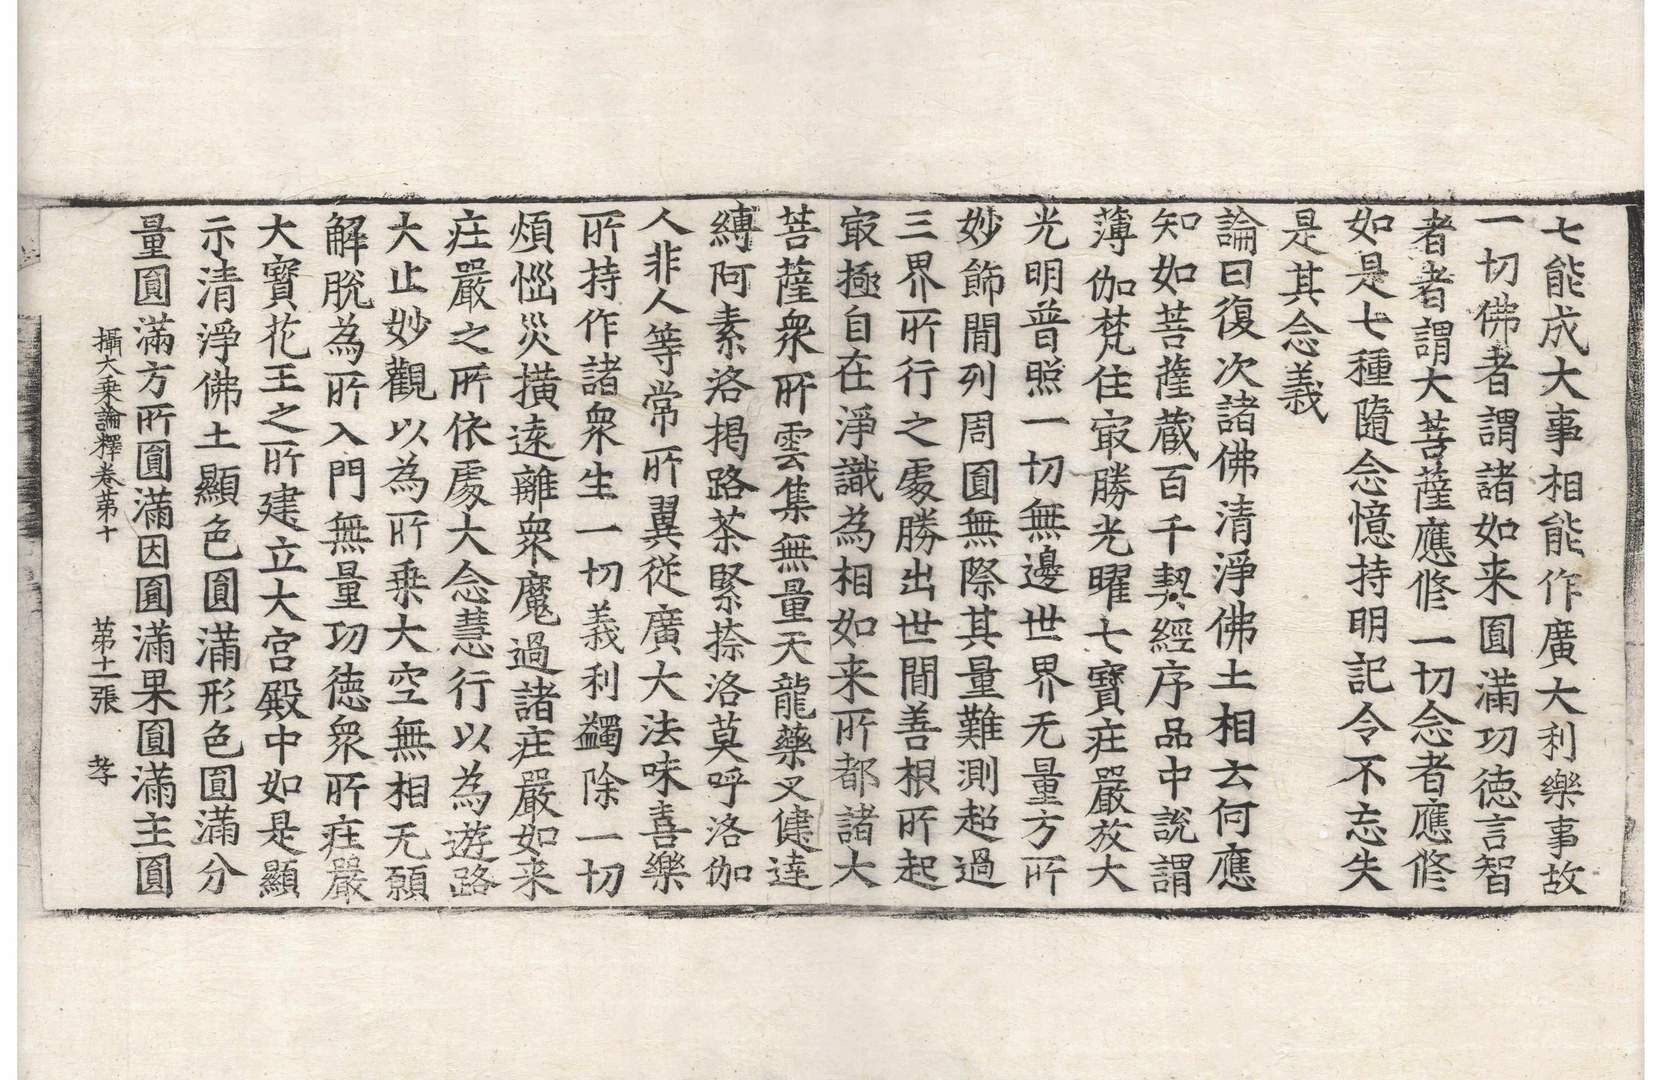 七能成大事相能作廣大利樂事故
一切佛者謂諸如来圎滿功徳言智
者者謂大菩薩應修一切念者應修
如是七種隨念憶持明記令不忘失
是其念義
論曰復次諸佛清淨佛土相云何應
知如菩薩蔵百千契經序品中說謂
薄伽梵住㝡勝光曜七寶莊嚴放大
光明普照一切無邊世界无量方所
妙飾間列周圎無際其量難測超過
三界所行之處勝出世間善根所起
㝡極自在淨識為相如来所都諸大
菩薩衆所雲集無量天龍藥叉健達
縛阿素洛揭路茶緊捺洛莫呼洛伽
人非人等常所翼従廣大法味喜樂
所持作諸衆生一切義利蠲除一切
煩惱災橫遠離衆魔過諸莊嚴如来
莊嚴之所依處大念慧行以為遊路
大止妙觀以為所乗大空無相无願
解脫為所入門無量功徳衆所莊嚴
大寶花王之所建立大宮殿中如是顯
示清淨佛土顯色圎滿形色圎滿分
量圎滿方所圎滿因圎滿果圎滿主圎
攝大乗論釋卷苐十 苐十一張 孝